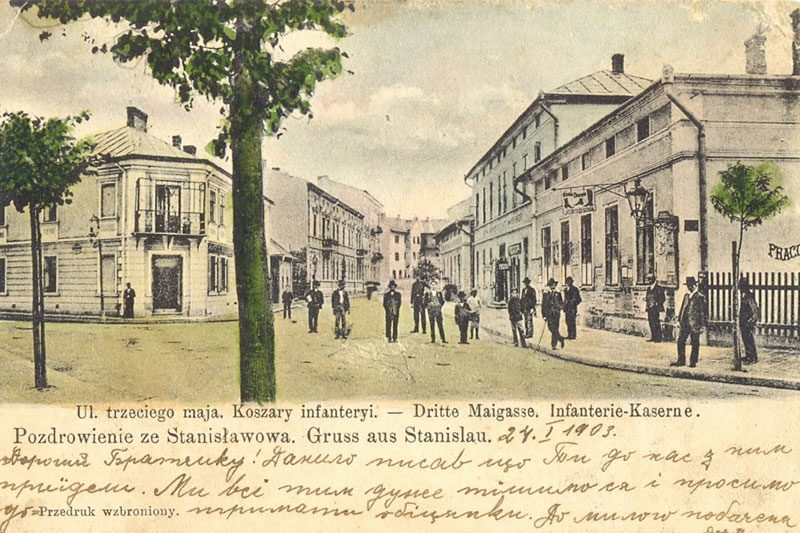 PRACO
Ul. trzeciego maja. Koszary infanteryi. — Dritte Maigasse. Infanterie-Kaserne.
Pozdrowienie ze Stanisławowa. Gruss aus Stanislau. 24. I 1903.
Дорогий Братчику! Данило писав що Ти до нас з ним
приїдеш. Ми всі тим дуже тішимо ся і просимо
до- Przedruk wzbroniony. -тримати обіцянки. До милого побаченя